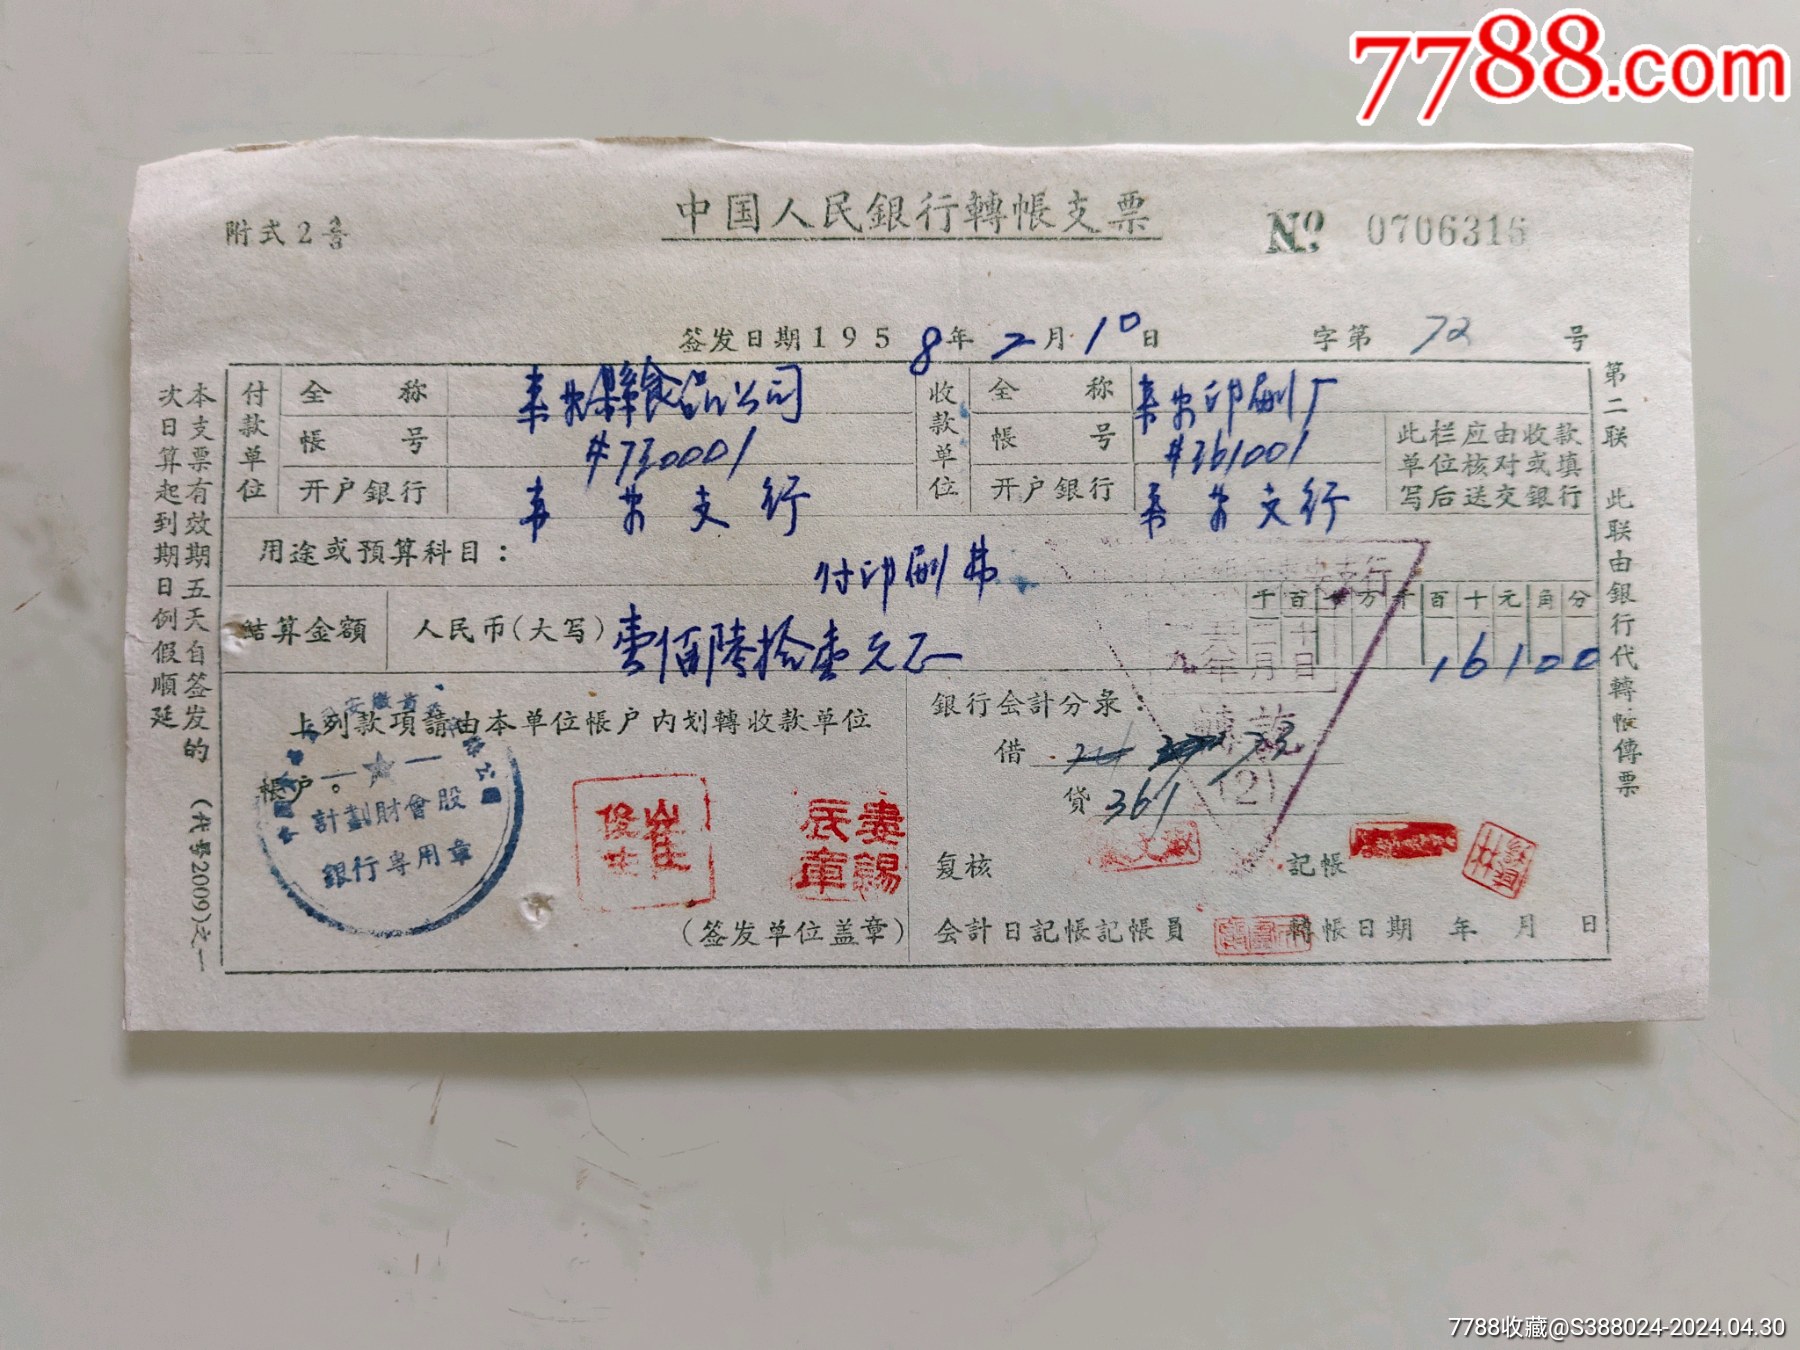 7788.com
附式2
中国人民銀行轉帳支票
№ 0706316
签发日期1958年2月10日
字第72号
付款单位
全称 来安縣食品公司
帳号 #730001
开户銀行 来安支行
收款单位
全称 来安印刷厂
帳号 #361001
开户銀行 来安支行
此栏应由收款
单位核对或填
写后送交銀行
用途或預算科目：
付印刷费
结算金額
人民币(大写)
壹佰陸拾壹元正
千百十万千百十元角分
16100
上列款項請由本单位帳户内划轉收款单位
帳户。
安徽省
計劃財會股
銀行専用章
崔
婁錫
章
(签发单位盖章)
銀行会計分录：
借
貸 361
支行
月 日
(2)
复核
記帳
会計日記帳記帳員
轉帳日期 年 月 日
本支票有效期五天自签发的
次日算起到期日例假順延
(代号2009)之一
第二联 此联由銀行代轉帳傳票
7788收藏@S388024-2024.04.30